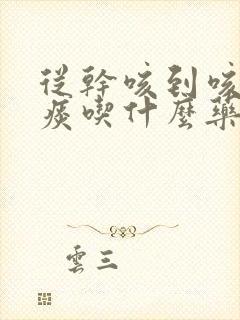 從幹咳到咳
痰喫什麼藥
雲三